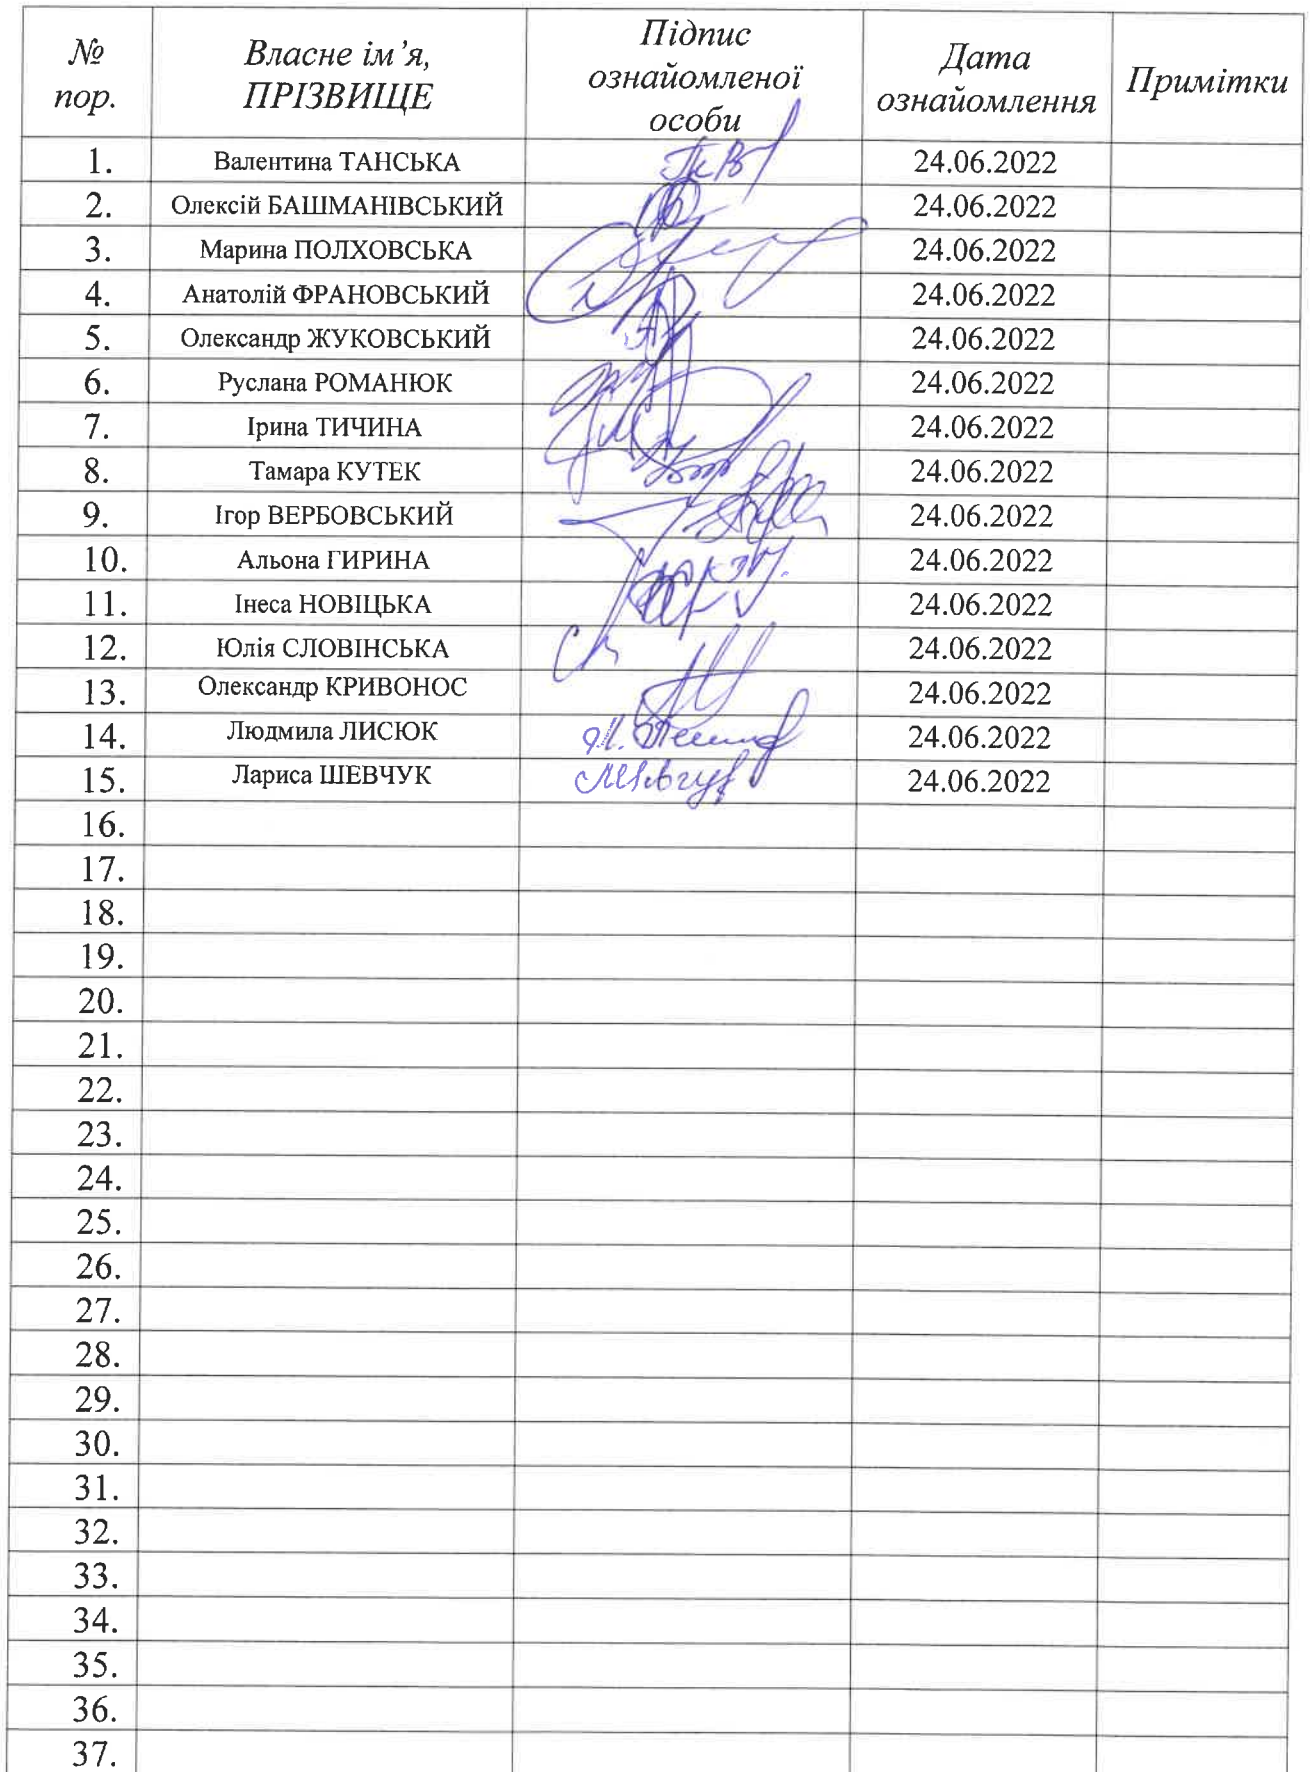 № пор. Власне ім’я, ПРІЗВИЩЕ Підпис ознайомленої особи Дата ознайомлення Примітки
1. Валентина ТАНСЬКА 24.06.2022
2. Олексій БАШМАНІВСЬКИЙ 24.06.2022
3. Марина ПОЛХОВСЬКА 24.06.2022
4. Анатолій ФРАНОВСЬКИЙ 24.06.2022
5. Олександр ЖУКОВСЬКИЙ 24.06.2022
6. Руслана РОМАНЮК 24.06.2022
7. Ірина ТИЧИНА 24.06.2022
8. Тамара КУТЕК 24.06.2022
9. Ігор ВЕРБОВСЬКИЙ 24.06.2022
10. Альона ГИРИНА 24.06.2022
11. Інеса НОВІЦЬКА 24.06.2022
12. Юлія СЛОВІНСЬКА 24.06.2022
13. Олександр КРИВОНОС 24.06.2022
14. Людмила ЛИСЮК 24.06.2022
15. Лариса ШЕВЧУК 24.06.2022
16.
17.
18.
19.
20.
21.
22.
23.
24.
25.
26.
27.
28.
29.
30.
31.
32.
33.
34.
35.
36.
37.